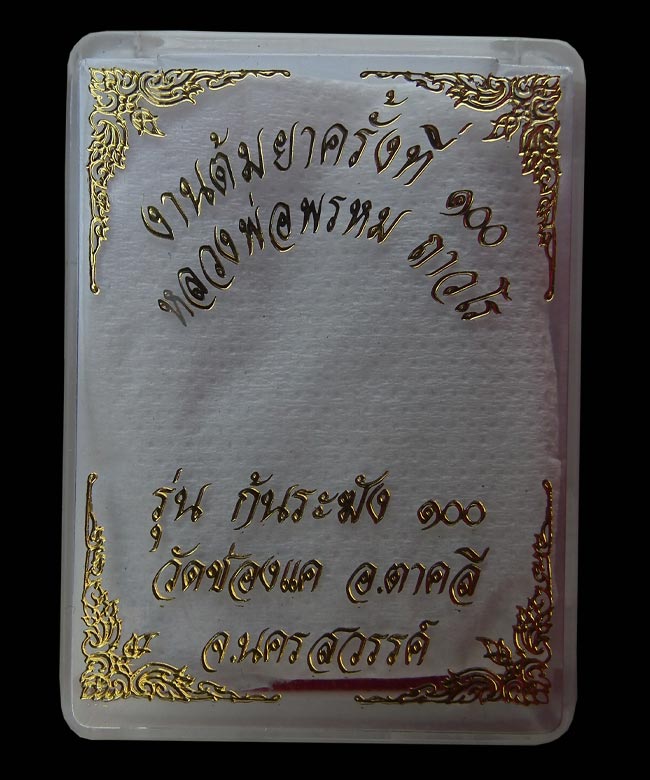 งานต้มยาครั้งที่ ๑๐๐
หลวงพ่อพรหม ถาวโร
รุ่น ก้นระฆัง ๑๐๐
วัดช่องแค อ.ตาคลี
จ.นครสวรรค์